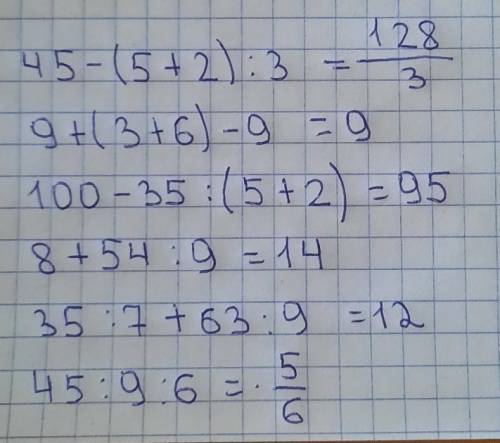 45-(5+2):3 = 128/3
9+(3+6)-9 = 9
100-35:(5+2) = 95
8+54:9 = 14
35:7+63:9 = 12
45:9:6 = 5/6